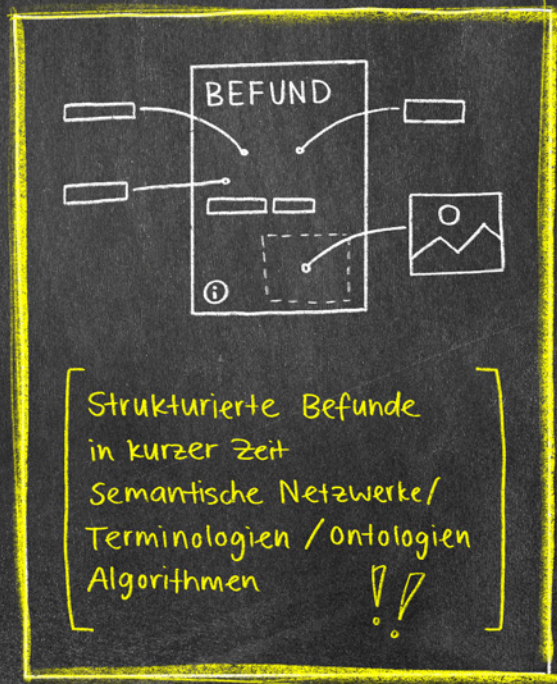 BEFUND
i
Strukturierte Befunde
in kurzer Zeit
Semantische Netzwerke/
Terminologien / Ontologien
Algorithmen !!